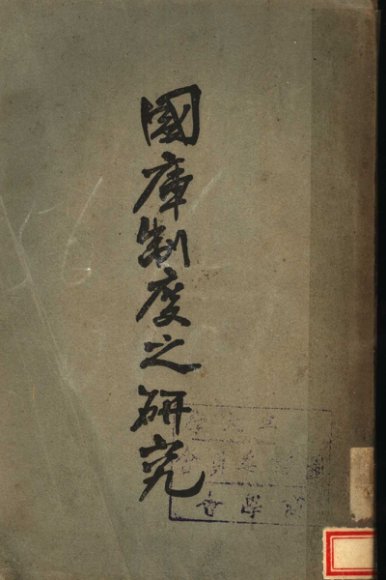 國庫制度之研究